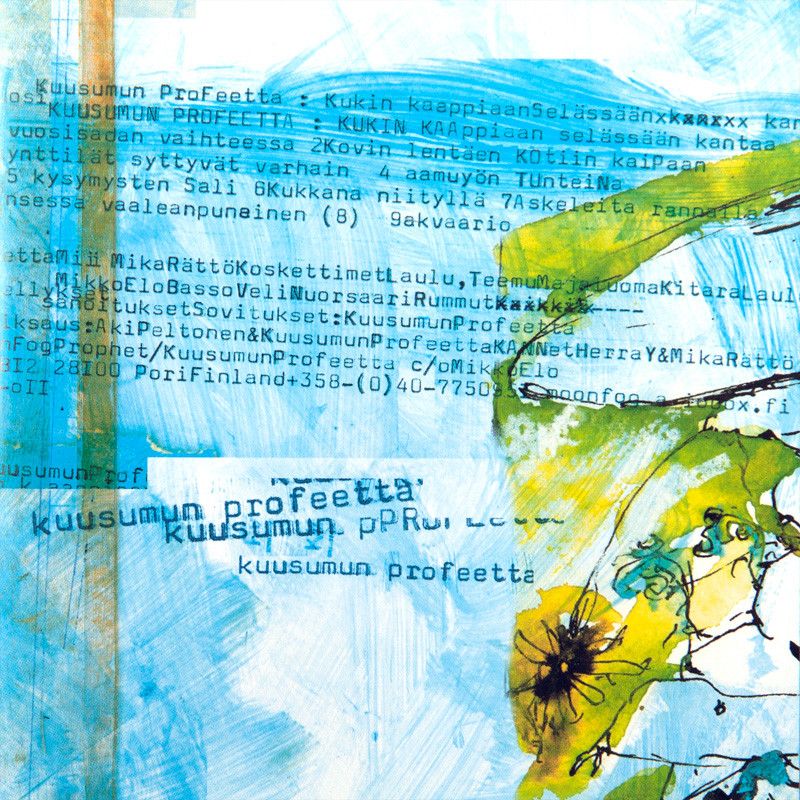 Kuusumun ProFeetta : Kukin kaappiaanSelässäänxkxxxxx kan
KUUSUMUN PROFEETTA : KUKIN KAAppiaan selässään kantaa
vuosisadan vaihteessa 2Kovin lentäen KOtiin kaiPaan
ynttilät syttyvät varhain 4 aamuyön TUnteiNa
5 kysymysten Sali 6Kukkana niityllä 7Askeleita rannalla
nsessa vaaleanpunainen (8) 9akvaario
ettaMiji MikaRättöKoskettimetLaulu,TeemuMajaluomaKitaraLaul
ellyks MikkoEloBassoVeliNuorsaariRummut
sanoituksetSovitukset:KuusumunProfeetta
iksaus:AkiPeltonen&KuusumunProfeettaKANNetHerraY&MikaRättö
nFogProphet/KuusumunProfeetta c/oMikkoElo
812 28100 PoriFinland+358-(0)40-77509 moonfog a box.fi
-oII
uusumunProf
kuusumun profeetta
kuusumun pPRof
kuusumun profeetta